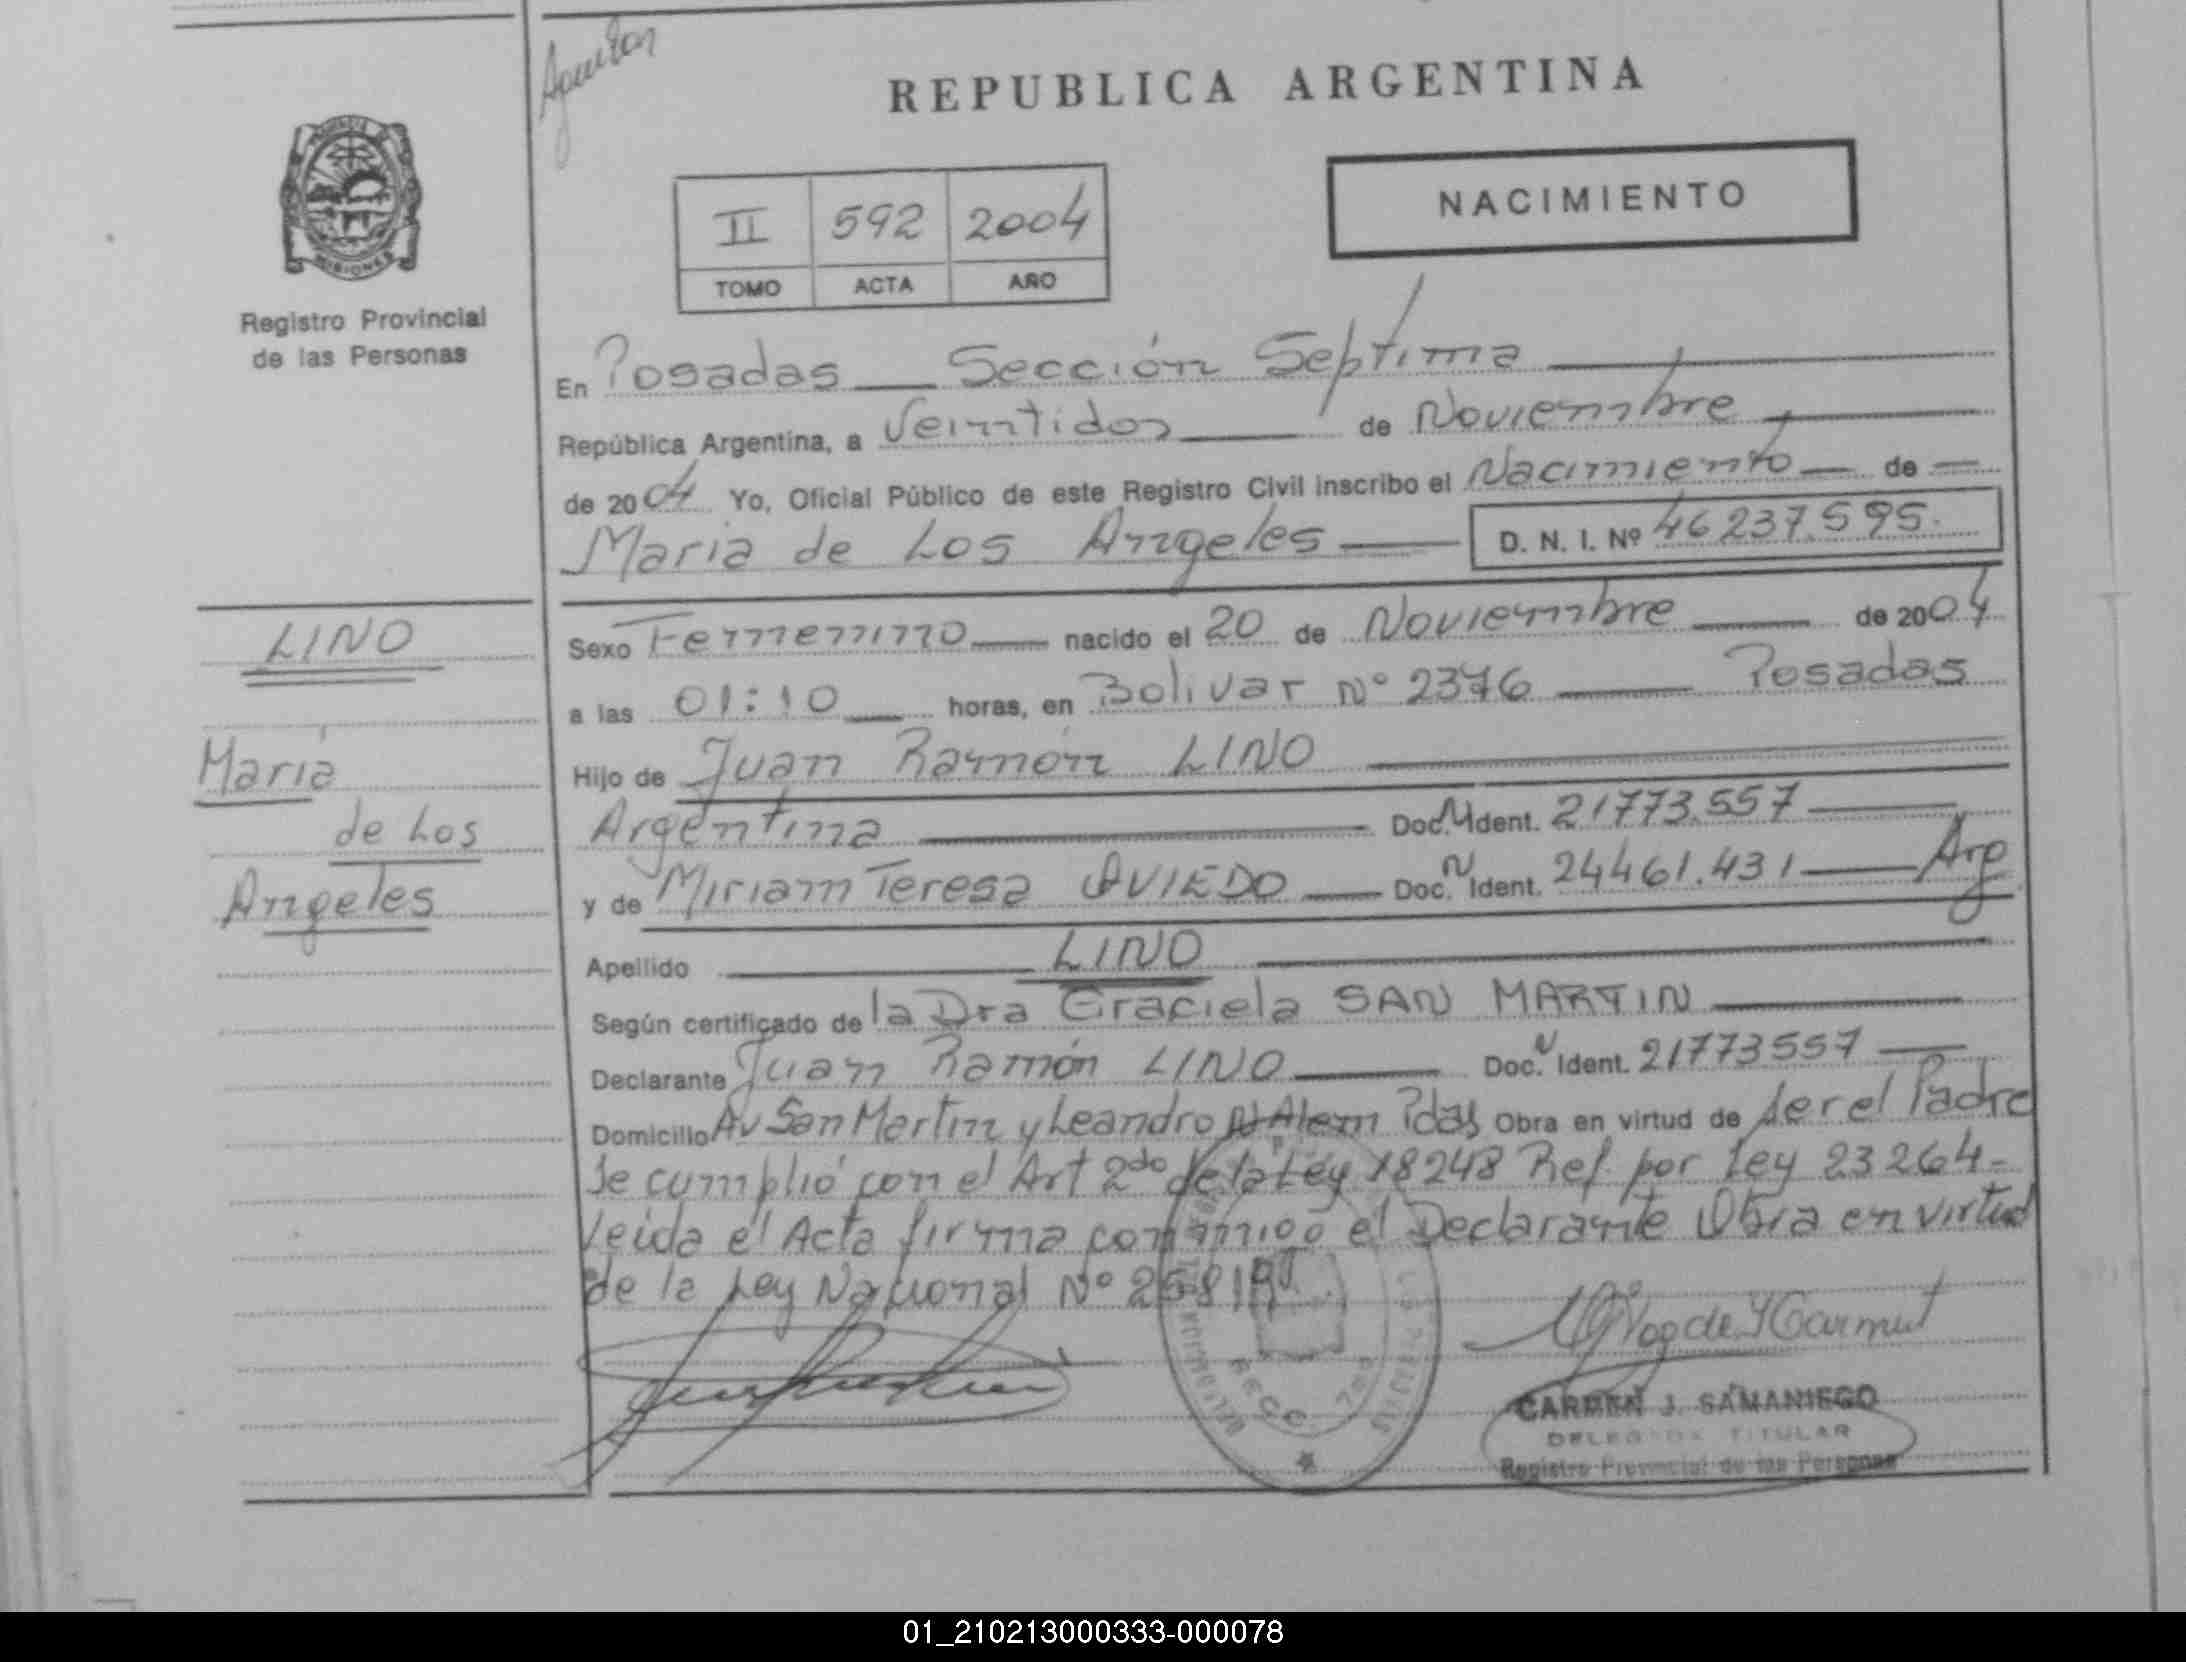 REPUBLICA ARGENTINA
NACIMIENTO
II 592 2004
TOMO ACTA AÑO
MISIONES
Registro Provincial
de las Personas
En Posadas — Sección Septima
República Argentina, a Veintidos de Noviembre
de 2004 Yo, Oficial Público de este Registro Civil inscribo el Nacimiento de
Maria de Los Angeles D. N. I. Nº 46237.595.
LINO
Maria
de Los
Angeles
Sexo Femenino nacido el 20 de Noviembre de 2004
a las 01:10 horas, en Bolivar Nº 2376 Posadas
Hijo de Juan Ramón LINO
Argentina Doc. N Ident. 21773.557
y de Miriam Teresa OVIEDO Doc. N Ident. 24461.431 Arg
Apellido LINO
Según certificado de la Dra Graciela SAN MARTIN
Declarante Juan Ramón LINO Doc. N Ident. 21773557
Domicilio Av San Martin y Leandro N Alem Pdas Obra en virtud de ser el Padre
Se cumplió con el Art 2do de la Ley 18248 Ref. por Ley 23264-
Leida el Acta firma conmigo el Declarante Obra en virtud
de la Ley Nacional Nº
CARMEN J. SAMANIEGO
DELEGADA TITULAR
Registro Provincial de las Personas
01_210213000333-000078